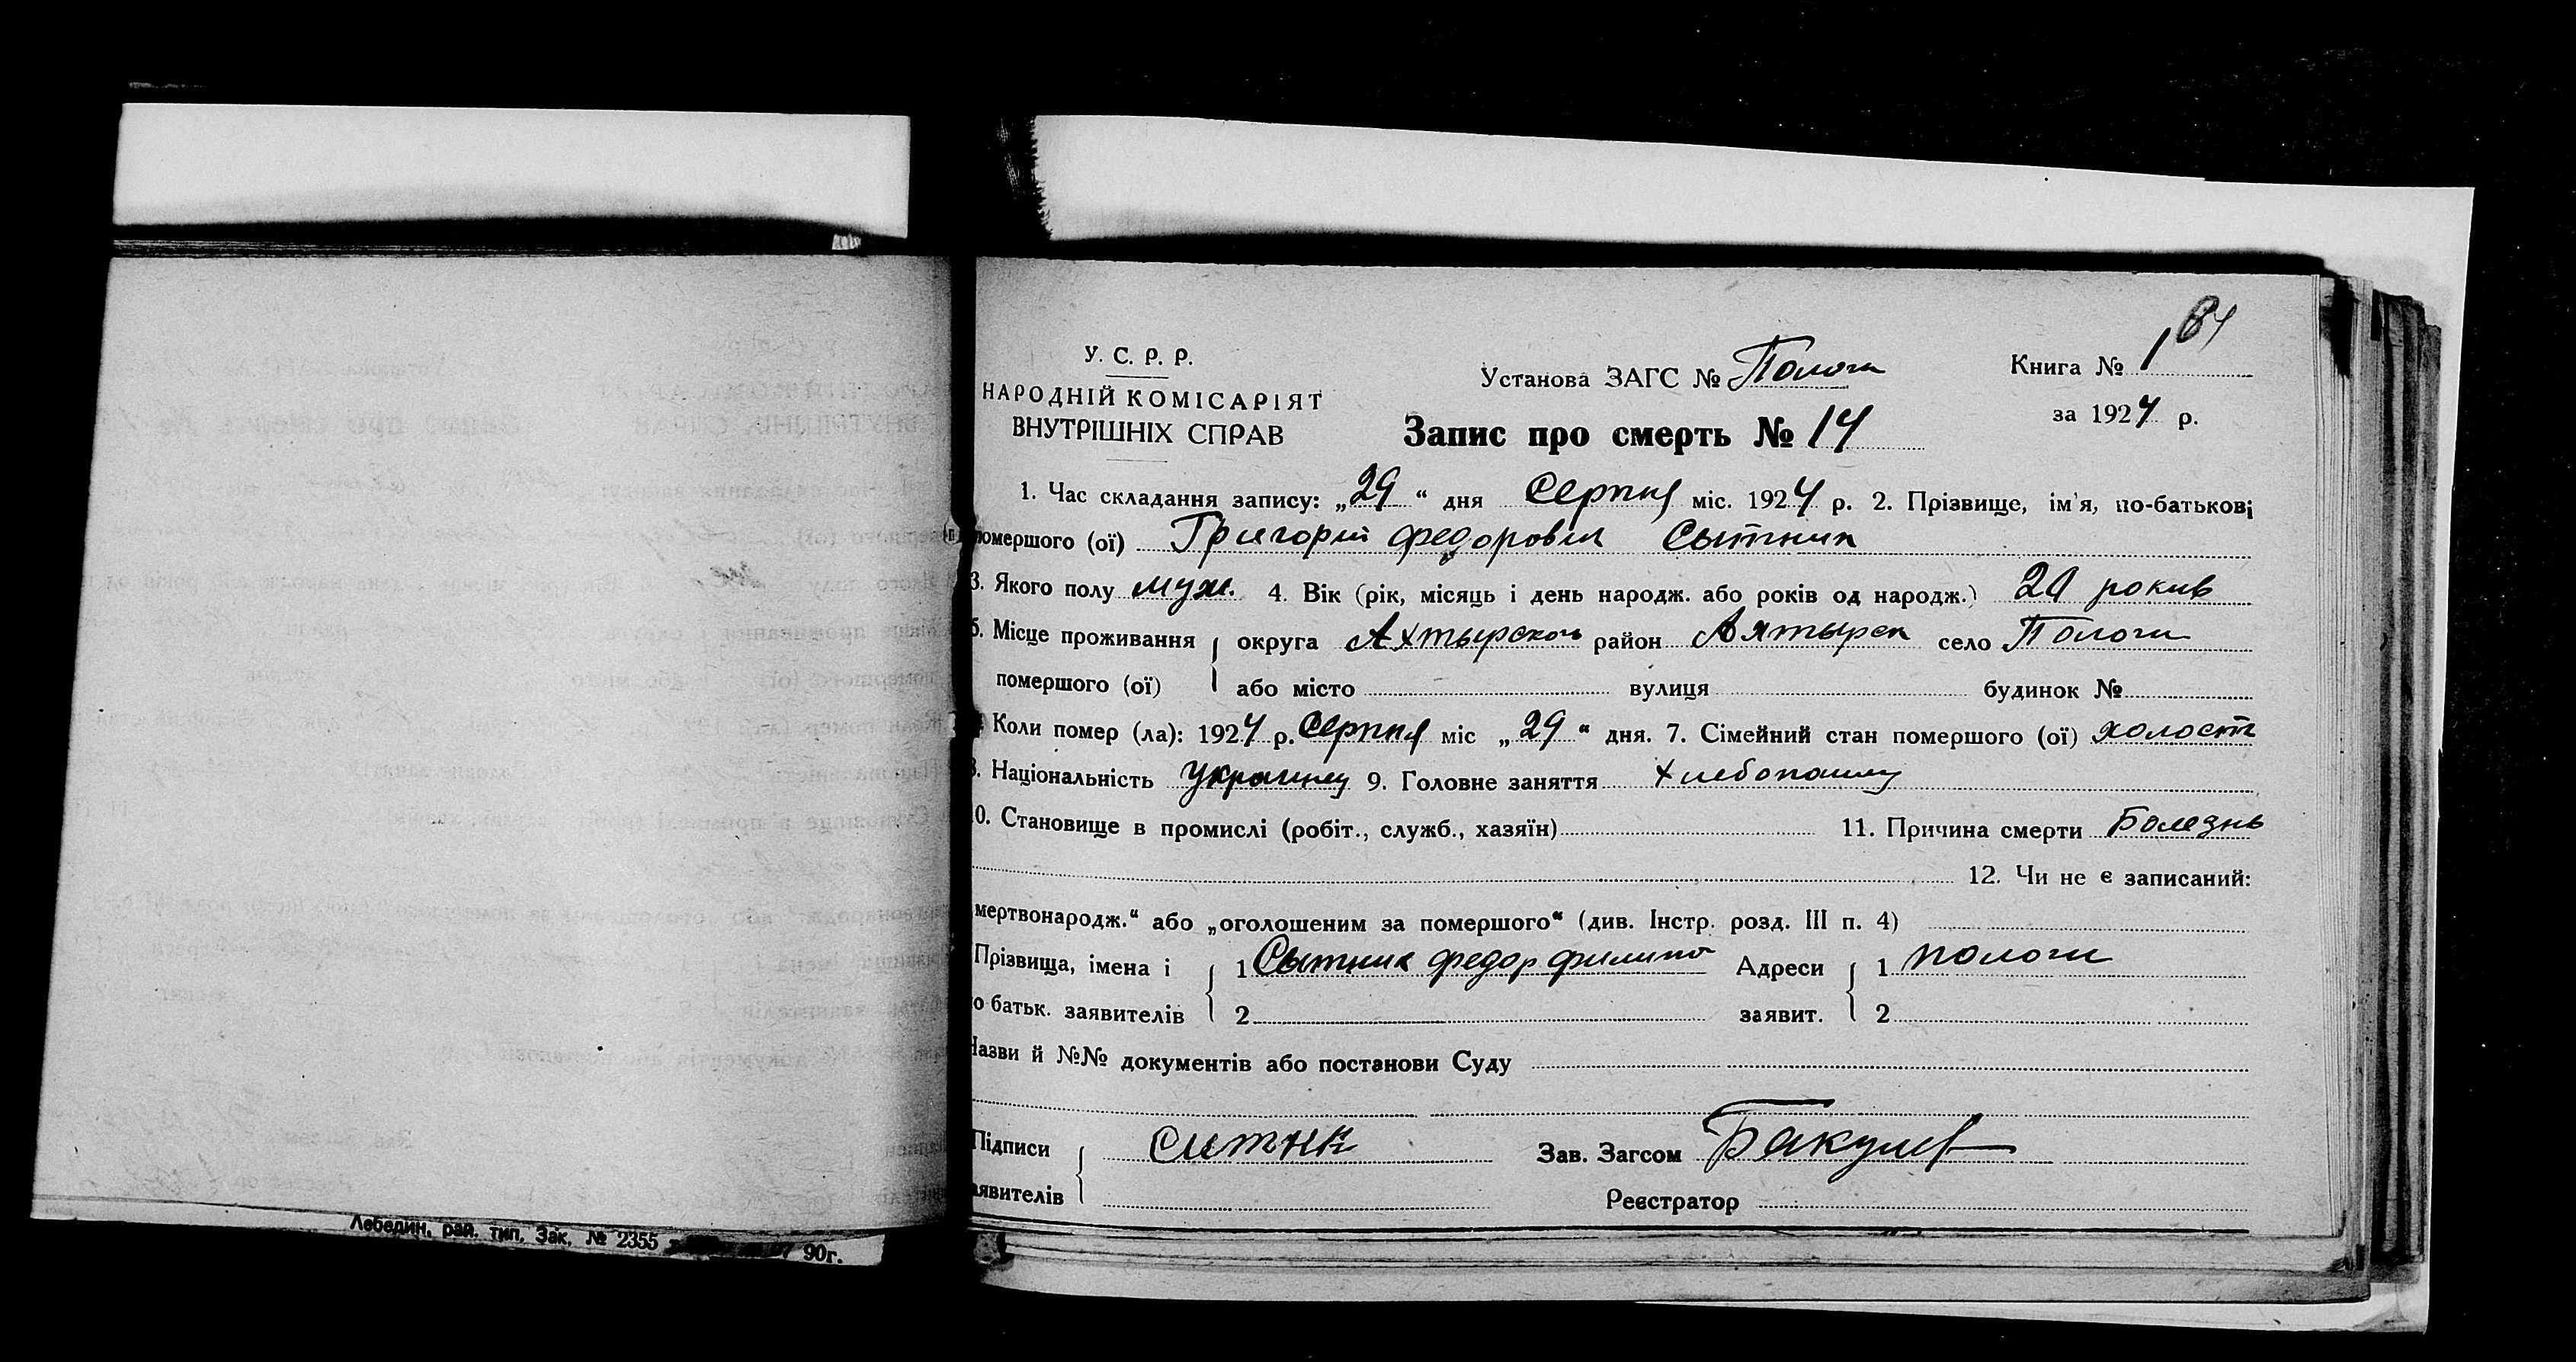 У. С. Р. Р.
НАРОДНІЙ КОМІСАРІЯТ
ВНУТРІШНІХ СПРАВ
Установа ЗАГС № Пологи
Книга № 1
за 1924 р.
Запис про смерть № 14
1. Час складання запису: „29“ дня Серпня міс. 1924 р. 2. Прізвище, ім'я, по-батькові
помершого (ої) Григорий Федорович Сытник
3. Якого полу муж. 4. Вік (рік, місяць і день народж. або років од народж.) рокив
5. Місце проживання округа район село Пологи
помершого (ої) або місто вулиця будинок №
Коли помер (ла): 1924 р. Серпня міс „29“ дня. 7. Сімейний стан помершого (ої) холост
8. Національність украинец 9. Головне заняття хлебопашец
10. Становище в промислі (робіт., служб., хазяїн) 11. Причина смерти Болезнь
12. Чи не є записаний:
мертвонародж.“ або „оголошеним за помершого“ (див. Інстр. розд. III п. 4)
Прізвища, імена і 1 Сытник Федор Филипо Адреси 1 Пологи
о батьк. заявителів 2 заявит. 2
Назви й №№ документів або постанови Суду
Підписи ситнк Зав. Загсом Бакулин
аявителів Реєстратор
Лебедин, рай. тип, Зак. № 2355 90г.